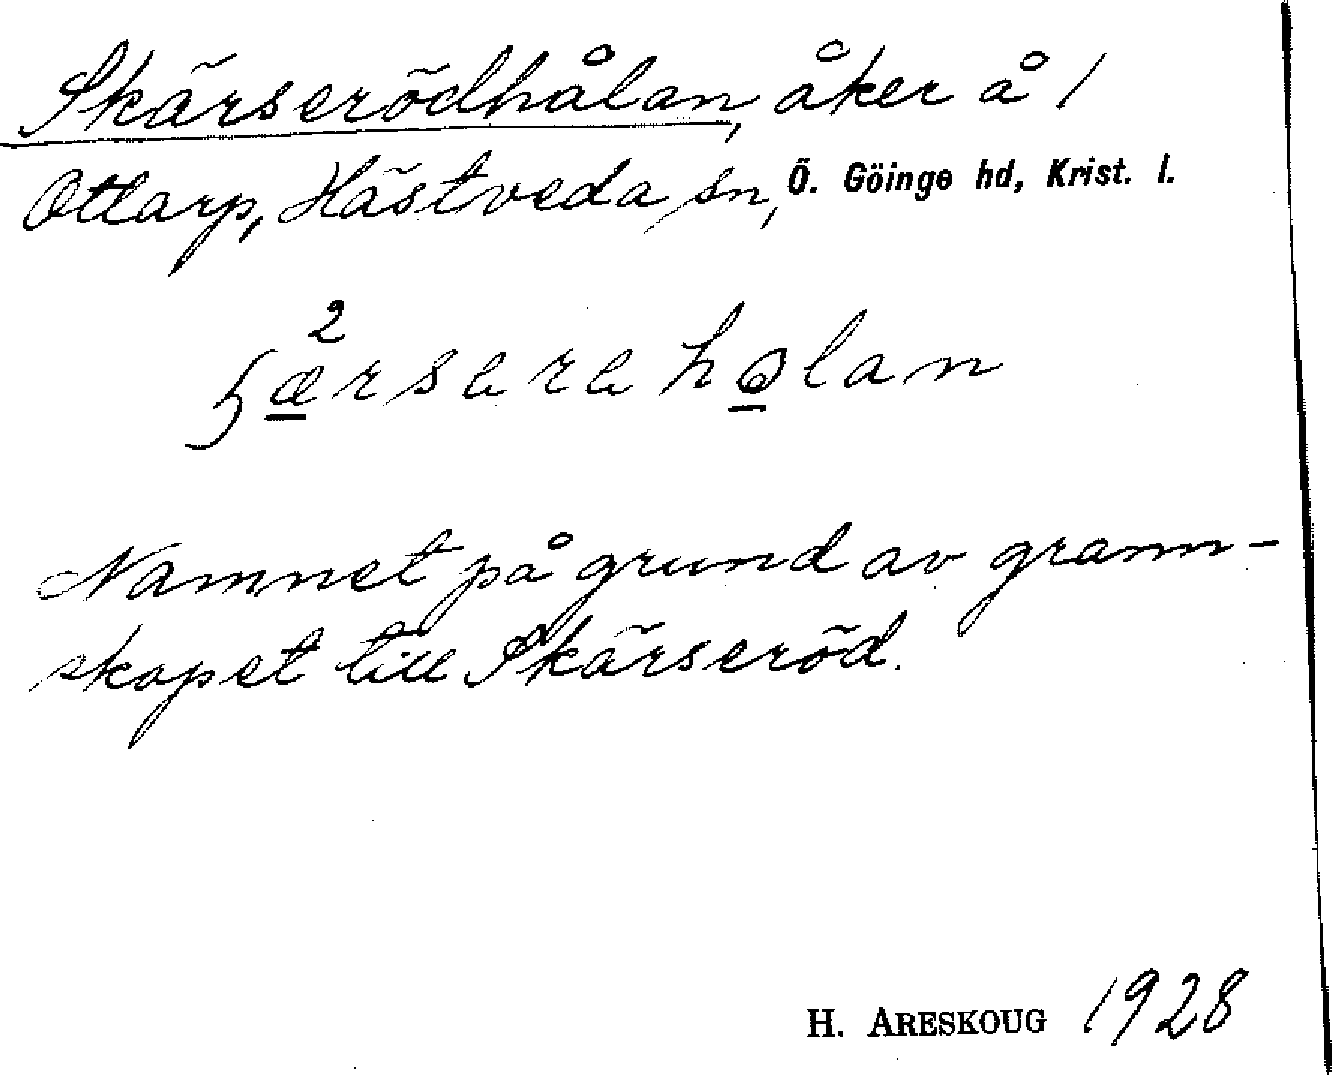 Skärserödhålan, åker å 1
Ottarp, Hästveda sn, Ö. Göinge hd, Krist. l.
2
ɧærsara holan
Namnet på grund av grann-
skapet till Skärseröd.
H. ARESKOUG 1928